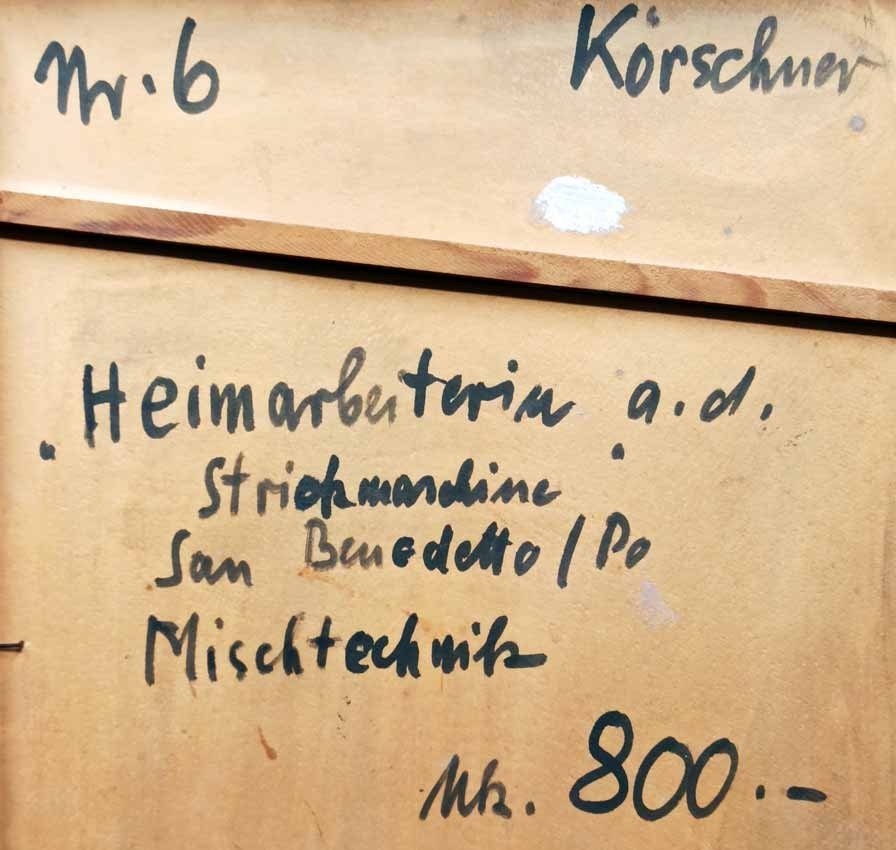 Nr. 6 Körschner
„Heimarbeiterin„ a.d.
Strickmaschine
San Benedetto / Po
Mischtechnik
Mk. 800.-